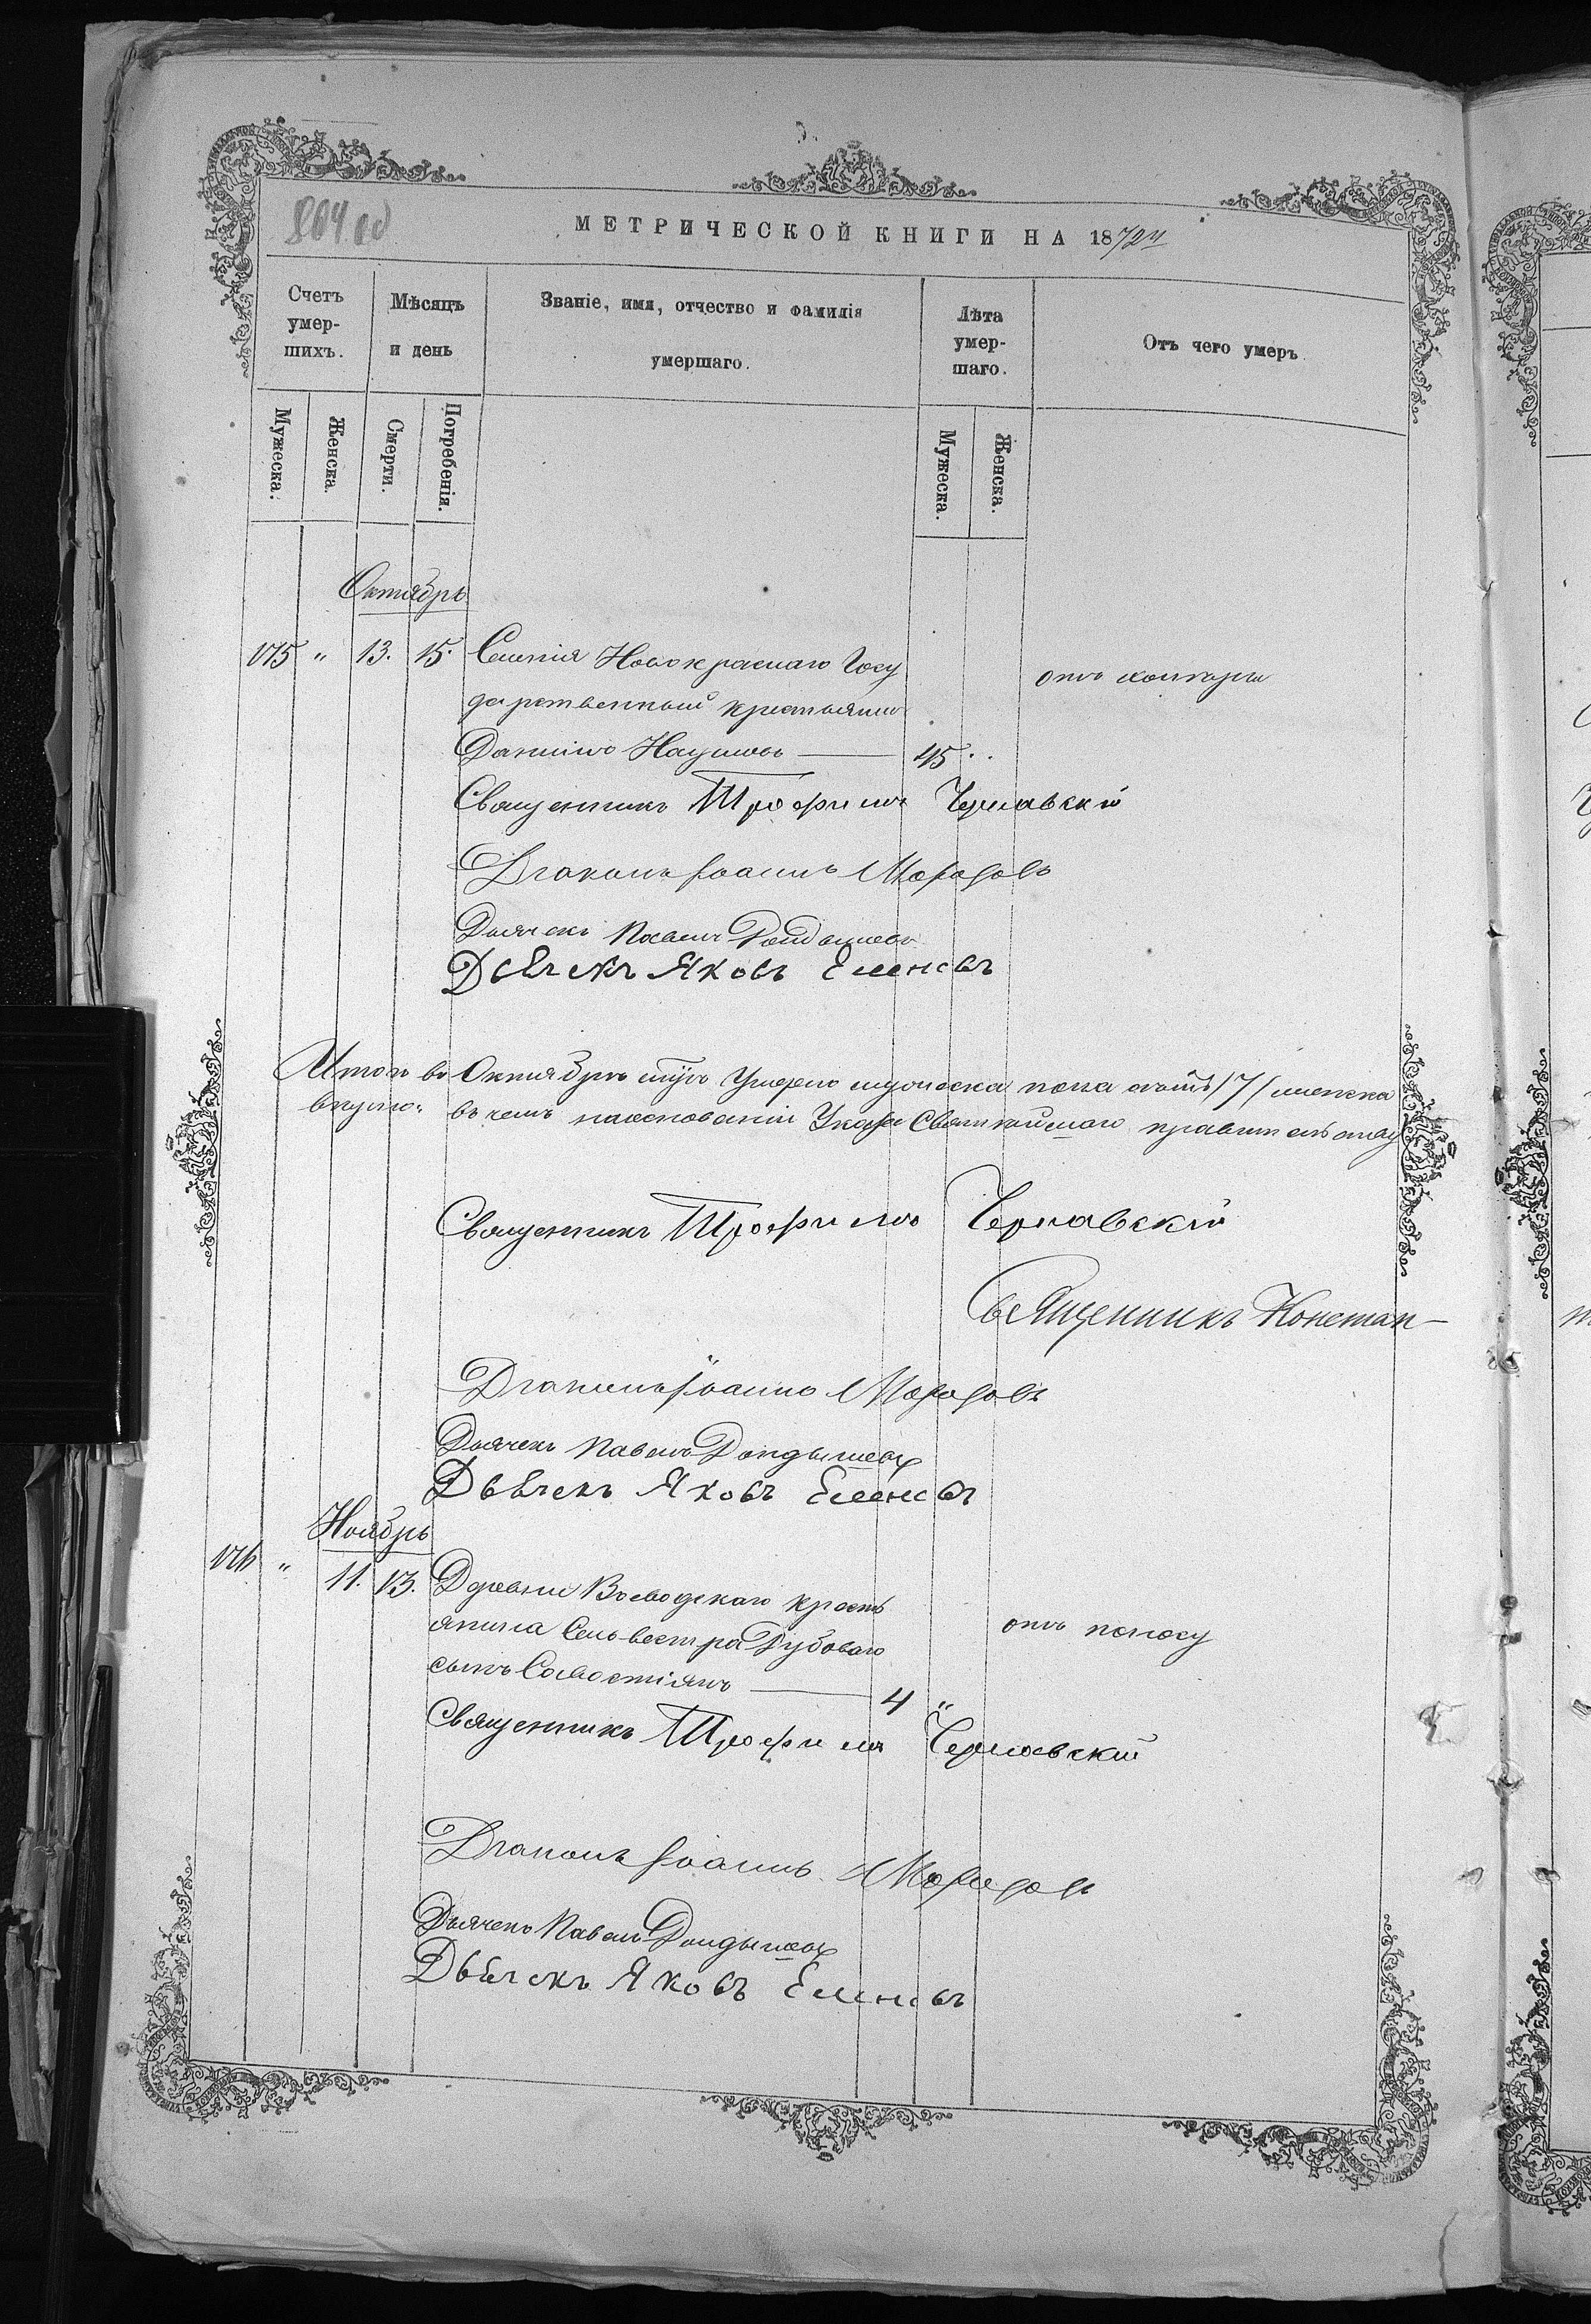 804 об
МЕТРИЧЕСКОЙ КНИГИ НА 1872 й
Счетъ умершихъ.
Мѣсяцъ и день
Званіе, имя, отчество и фамилія умершаго.
Лѣта умершаго.
Отъ чего умеръ
Мужеска.
Женска.
Смерти.
Погребенія.
Мужеска.
Женска.
Октябрь
175 " 13. 15. Селенія Новокраснаго Госу
дарственный крестьянинъ
Даніилъ Наумовъ 45 "
отъ холеры
Священникъ Трофимъ Чернавскій
Діаконъ Іоаннъ Морозовъ
Дьячекъ Павелъ
Дьячекъ Яковъ
Итого въ Октябрѣ Умерло мужеска пола семь /7/ женска
въ чемъ наосновании Указа Святѣйшаго
Священникъ Трофимъ Чернавскій
Священникъ Констан-
Діаконъ Іоаннъ Морозовъ
Дьячекъ Павелъ
Дьячекъ Яковъ
Ноябрь
176 " 11. 13. Деревни Воеводскаго крестъ
янина Сельвестра Дубоваго
сынъ Савостіянъ 4 "
отъ поносу
Священникъ Трофимъ Чернавскій
Діаконъ Іоаннъ Морозовъ
Дьячекъ Павелъ
Дьячекъ Яковъ